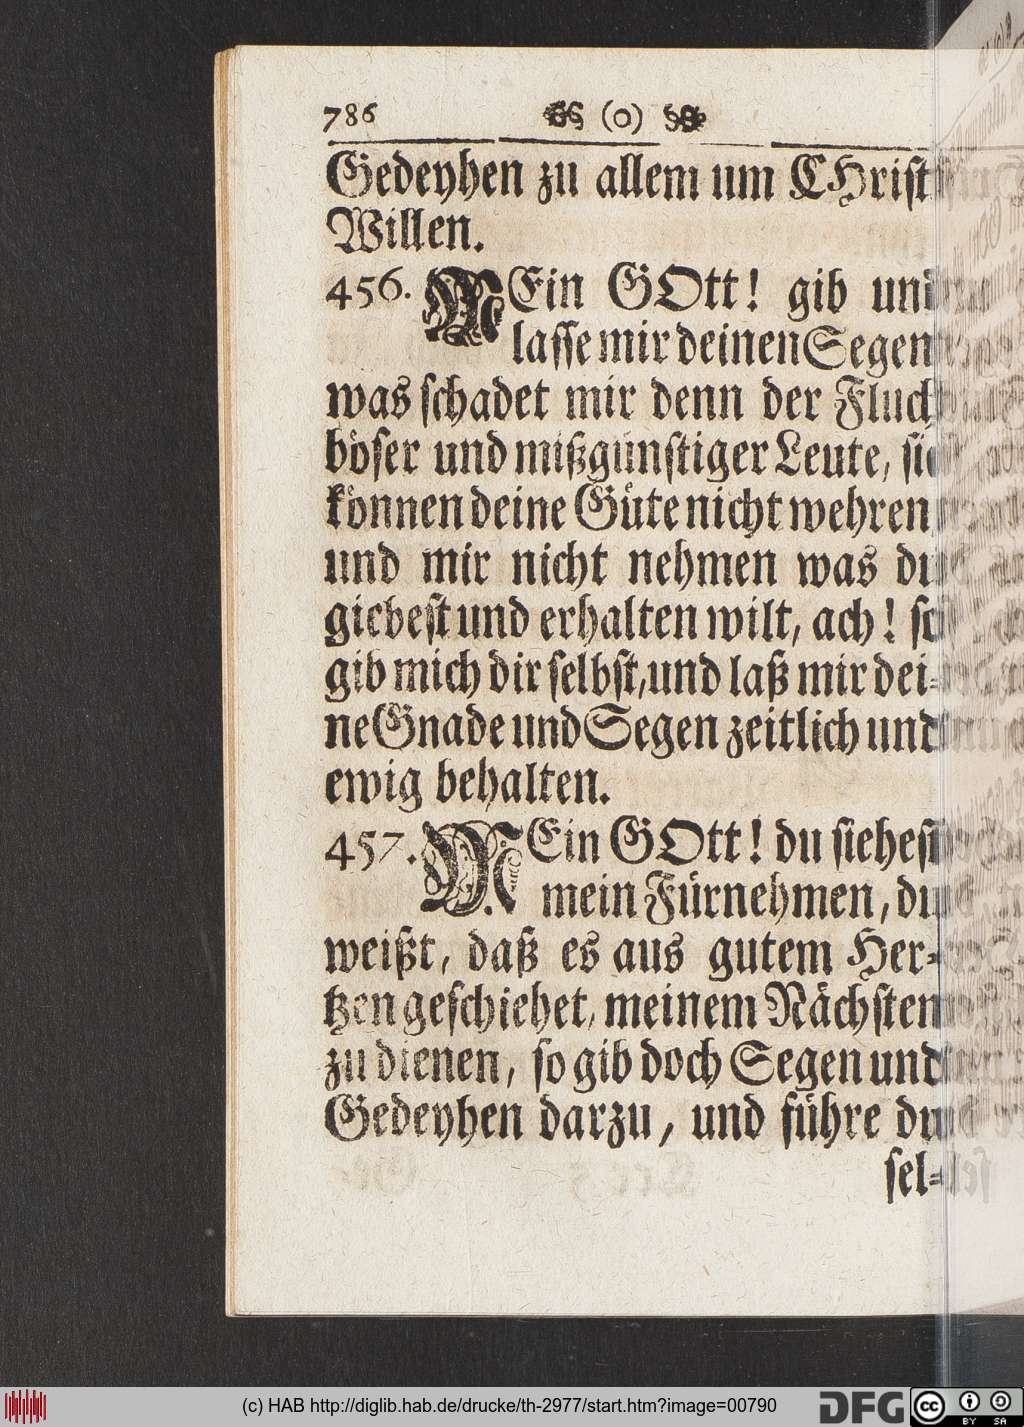 786 (o)
Gedeyhen zu allem um CHrist
Willen.
456. MEin GOtt! gib und
lasse mir deinen Segen
was schadet mir denn der Fluch
böser und mißgünstiger Leute, sie
können deine Güte nicht wehren,
und mir nicht nehmen was du
giebest und erhalten wilt, ach! so
gib mich dir selbst, und laß mir dei-
ne Gnade und Segen zeitlich und
ewig behalten.
457. MEin GOtt! du siehest
mein Fürnehmen, du
weißt, daß es aus gutem Her-
tzen geschiehet, meinem Nächsten
zu dienen, so gib doch Segen und
Gedeyhen darzu, und führe du
sel-
(c) HAB http://diglib.hab.de/drucke/th-2977/start.htm?image=00790
DFG
cc BY SA